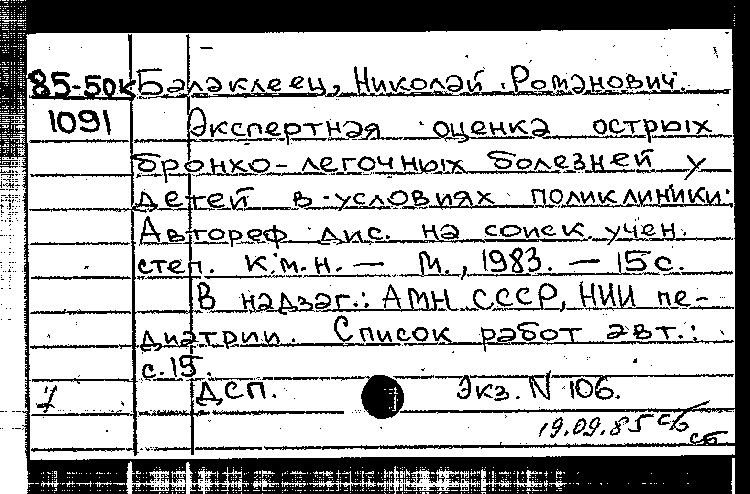 85-50к Балаклеец, Николай Романович.
1091 Экспертная оценка острых
бронхо-легочных болезней у
детей в условиях поликлиники.
Автореф. дис. на соиск. учен.
степ. к.м.н. — М., 1983. — 15 с.
В надзаг.: АМН СССР, НИИ пе-
диатрии. Список работ авт.:
с. 15.
ДСП. Экз. N 106.
19.09.85 сб
сб